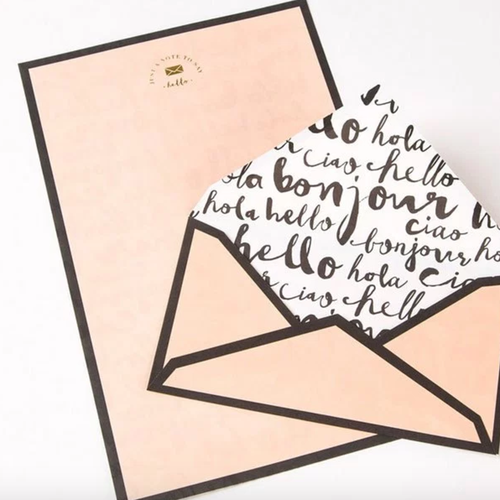 JUST A NOTE TO SAY
·hello·
hola
ciao hello
ola bonjour
hola hello ciao
bonjour ho
hello hola ci
ciao hell